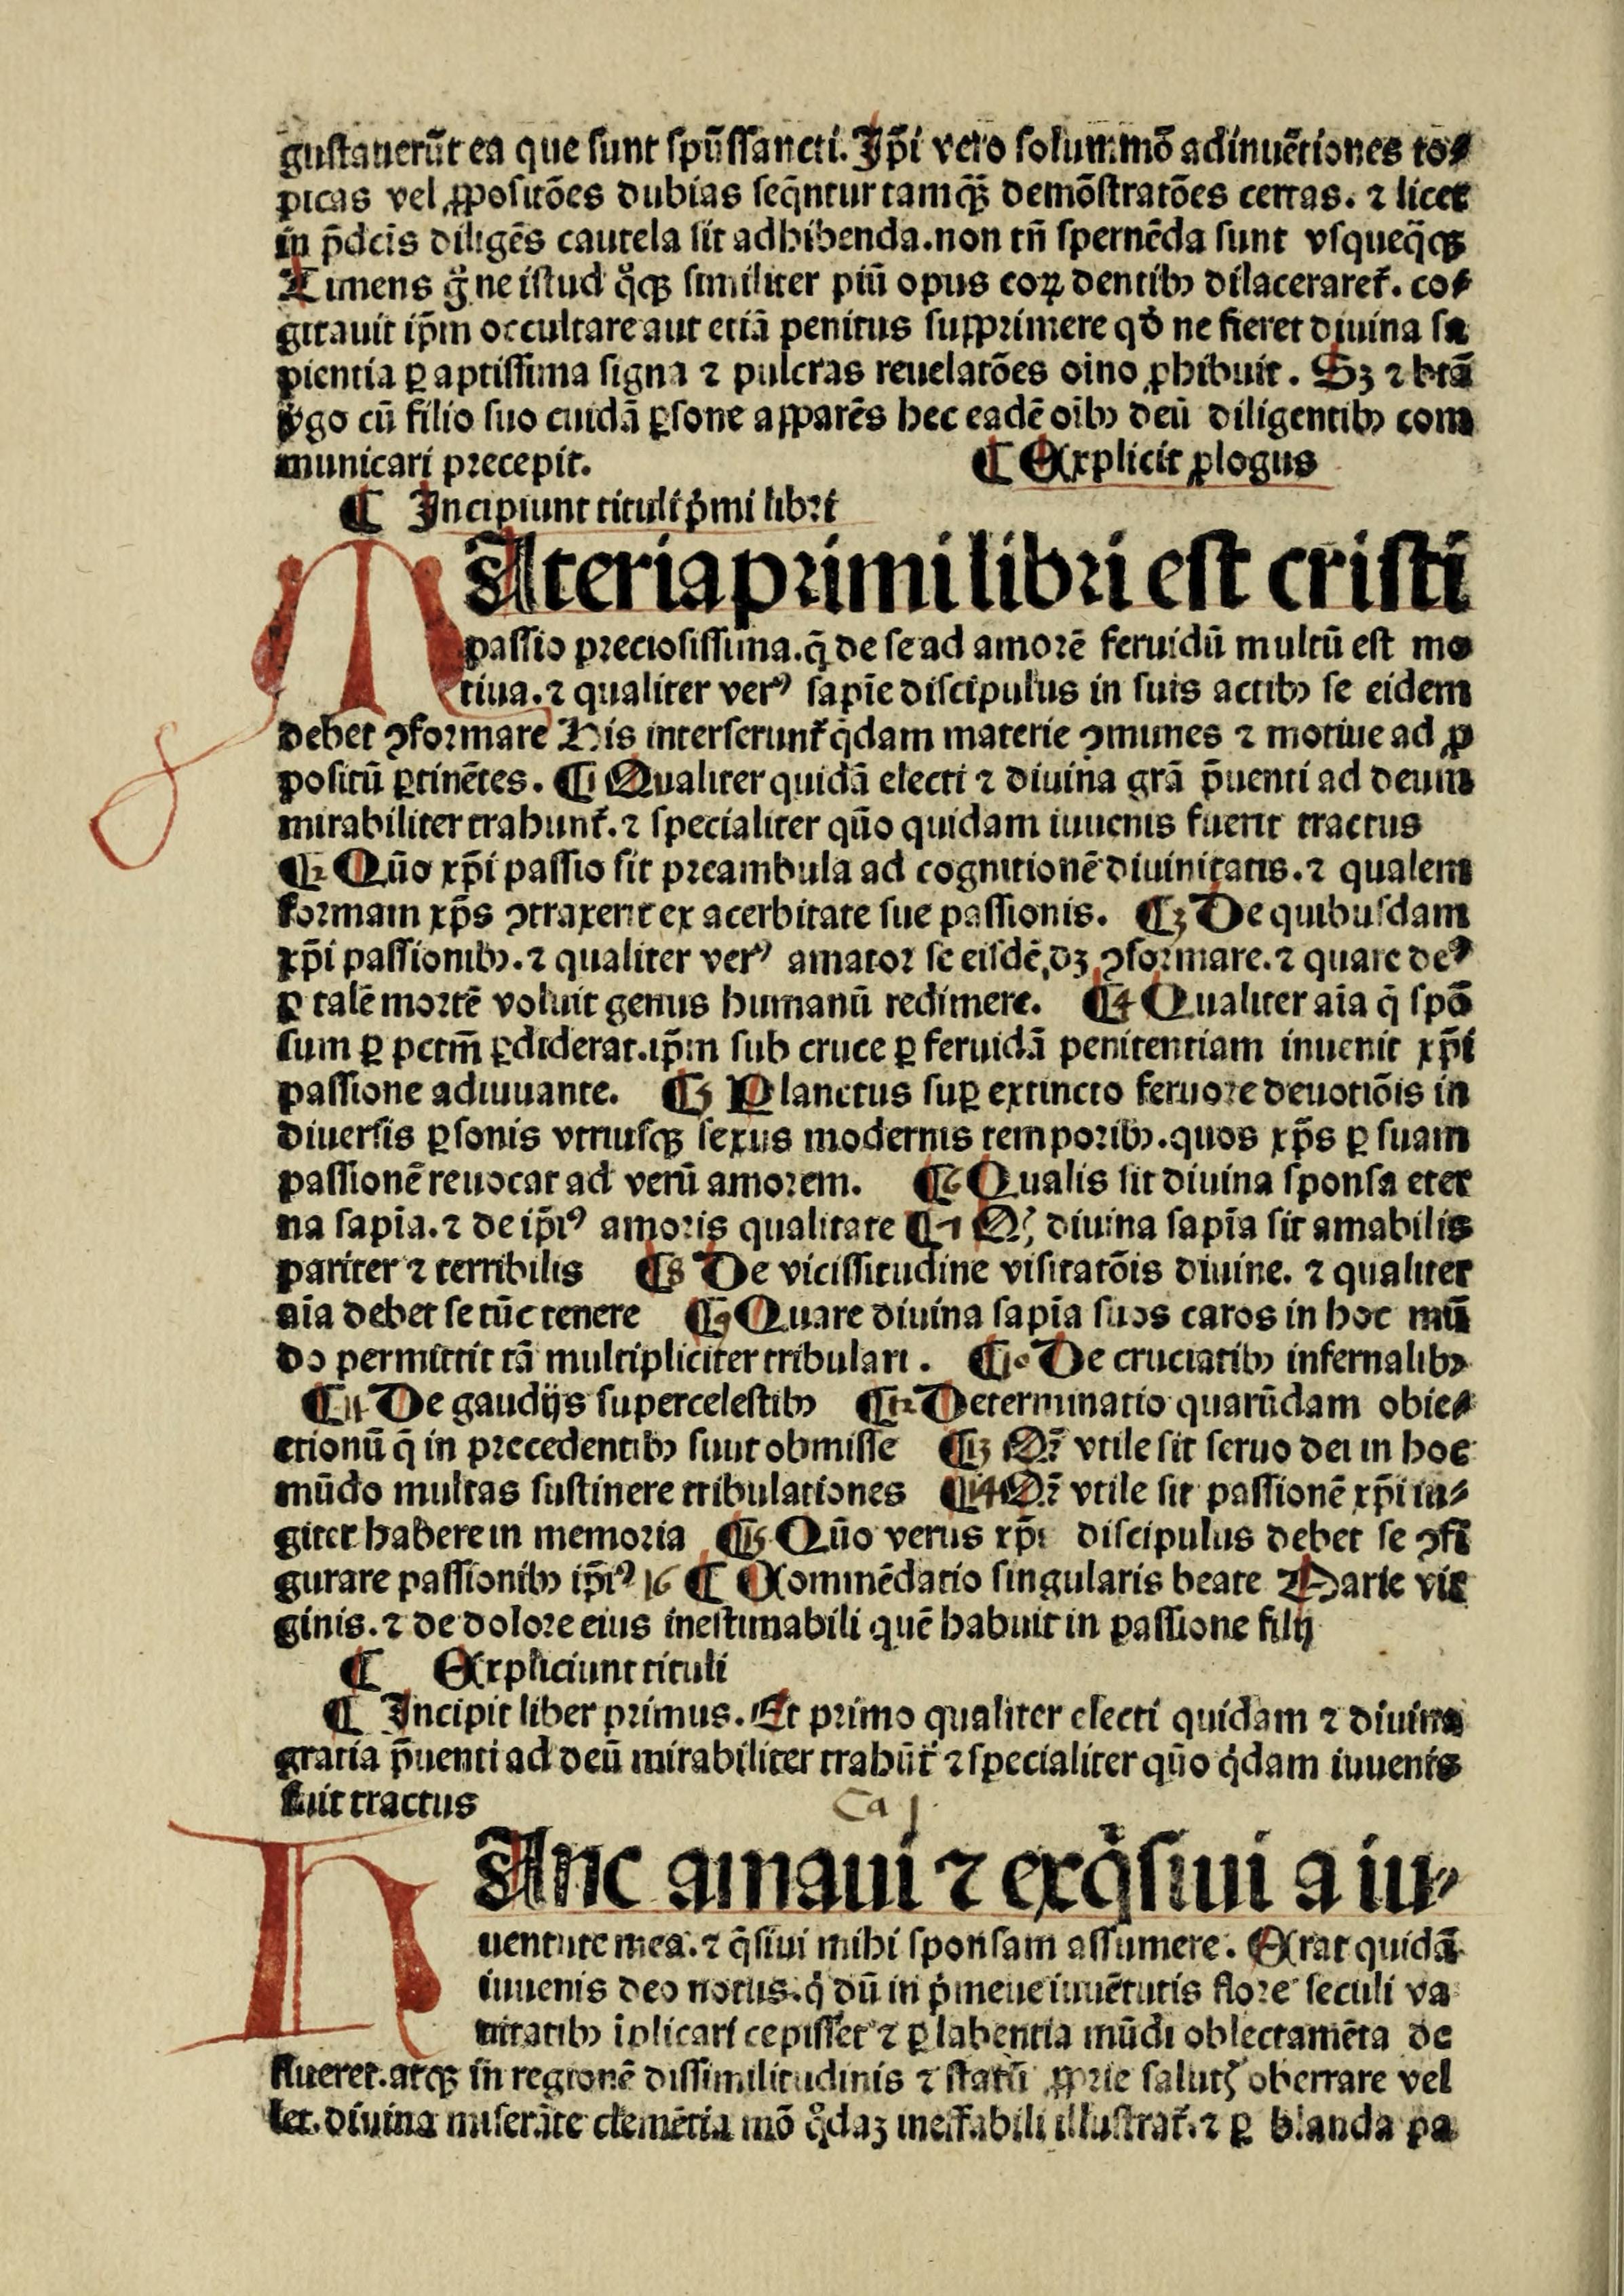 gustauerūt ea que sunt spūssancti. Ip̄i vero solummō adinuētiones to⸗
picas vel ꝓpositōes dubias seq̄ntur tamqꝫ demōstratōes certas. ⁊ licet
in p̄dcīs diligēs cautela sit adhibenda. non tn̄ spernēda sunt vsqueq̄qꝫ
Timens g̊ ne istud q̊qꝫ similiter piū opus eoꝝ dentibꝰ dilaceraret᷑. co⸗
gitauit ip̄m occultare aut etiā penitus supprimere qd̛ ne fieret diuina sa
pientia ꝑ aptissima signa ⁊ pulcras reuelatōes oīno ꝓhibuit. Sꝫ ⁊ btā
v̛go cū filio suo cuidā ꝑsone apparēs hec eadē oībꝰ deū diligentibꝰ com
municari precepit. ¶ Explicit ꝓlogus
¶ Incipiunt tituli p̛mi libri
MAteria primi libri est cristi
passio preciosissima. q̄ de se ad amorē feruidū multū est mo
tiua. ⁊ qualiter verꝰ sapīe discipulus in suis actibꝰ se eidem
debet ꝯformare His interserunt᷑ q̄dam materie ꝯmunes ⁊ motiue ad ꝓ
positū ꝑtinētes. ¶1 Qualiter quidā electi ⁊ diuina grā p̄uenti ad deum
mirabiliter trahunt᷑. ⁊ specialiter quō quidam iuuenis fuerit tractus
¶2 Quō xp̄i passio sit preambula ad cognitionē diuinitatis. ⁊ qualem
formam xp̄s ꝯtraxerit ex acerbitate sue passionis. ¶3 De quibusdam
xp̄i passionibꝰ. ⁊ qualiter verꝰ amator se eisdē dꝫ ꝯformare. ⁊ quare deꝰ
ꝑ talē mortē voluit genus humanū redimere. ¶4 Qualiter aīa q̄ spō
sum ꝑ pctm̄ ꝑdiderat. ip̄m sub cruce ꝑ feruidā penitentiam inuenit xp̄i
passione adiuuante. ¶5 Planctus suꝑ extincto feruore deuotiōis in
diuersis ꝑsonis vtriusqꝫ sexus modernis temporibꝰ. quos xp̄s ꝑ suam
passionē reuocat ad verū amorem. ¶6 Qualis sit diuina sponsa eter
na sapīa. ⁊ de ip̄iꝰ amoris qualitate ¶7 Qꝭ diuina sapīa sit amabilis
pariter ⁊ terribilis ¶8 De vicissitudine visitatōis diuine. ⁊ qualiter
aīa debet se tūc tenere ¶9 Quare diuina sapīa suos caros in hoc mū
do permittit tā multipliciter tribulari. ¶10 De cruciatibꝰ infernalibꝰ
¶11 De gaudijs supercelestibꝰ ¶12 Determinatio quarūdam obie⸗
ctionū q̄ in precedentibꝰ sunt obmisse ¶13 Qꝛ̄ vtile sit seruo dei in hoc
mūdo multas sustinere tribulationes ¶14 Qꝛ̄ vtile sit passionē xp̄i iu⸗
giter habere in memoria ¶15 Quō verus xp̄i discipulus debet se ꝯfi
gurare passionibꝰ ip̄iꝰ 16 ¶ Commēdatio singularis beate Marie vir
ginis. ⁊ de dolore eius inestimabili quē habuit in passione filij
¶ Expliciunt tituli
¶ Incipit liber primus. Et primo qualiter electi quidam ⁊ diuina
gratia p̄uenti ad deū mirabiliter trahūt᷑ ⁊ specialiter quō q̇dam iuuenis
fuit tractus Ca 1
HAnc amaui ⁊ exq̇siui a iu⸗
uentute mea. ⁊ q̄siui mihi sponsam assumere. Erat quidā
iuuenis deo notus. q̇ dū in p̛meue iuuētutis flore seculi va
nitatibꝰ īplicari cepisset ⁊ ꝑ labentia mūdi oblectamēta de
flueret. atqꝫ in regionē dissimilitudinis ⁊ statū ꝓprie salutꝭ oberrare vel
let. diuina miserāte clemētia mō q̊daꝫ ineffabili illustrat᷑. ⁊ ꝑ blanda pa